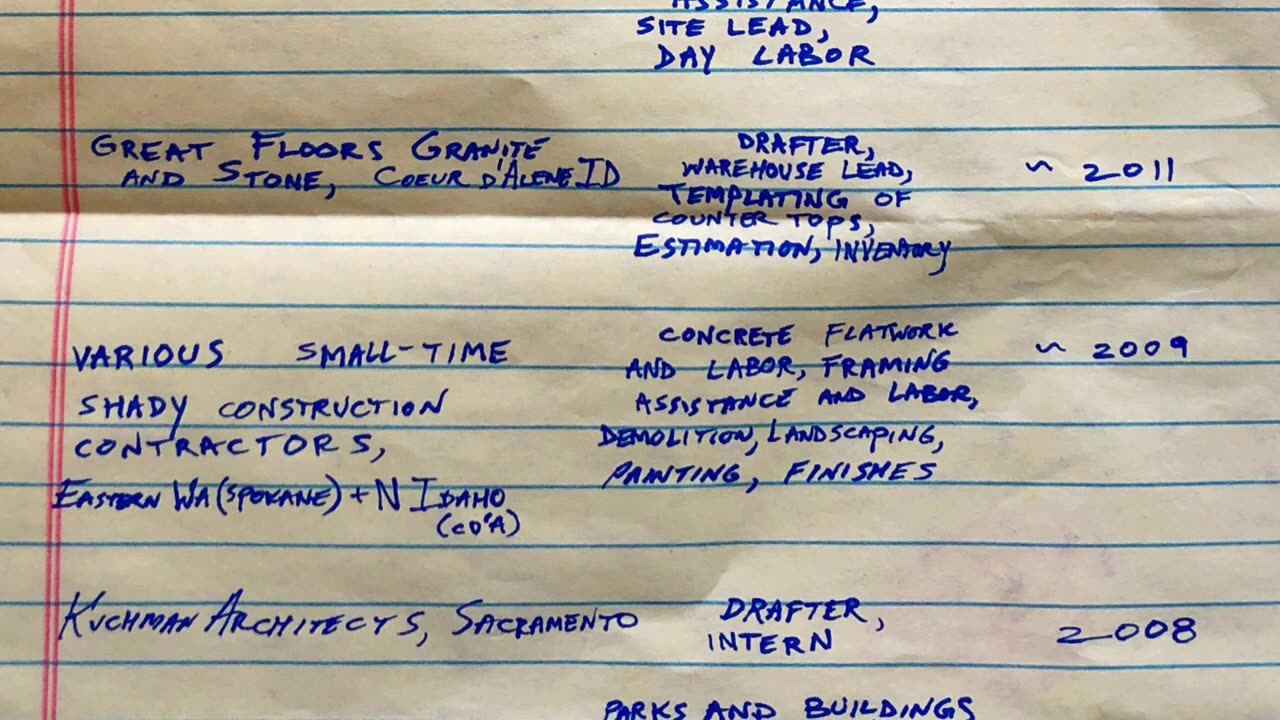 ASSISTANCE,
SITE LEAD,
DAY LABOR
GREAT FLOORS GRANITE
AND STONE, COEUR D'ALENE ID
DRAFTER,
WAREHOUSE LEAD,
TEMPLATING OF
COUNTER TOPS,
ESTIMATION, INVENTORY
~ 2011
VARIOUS SMALL-TIME
SHADY CONSTRUCTION
CONTRACTORS,
EASTERN WA (SPOKANE) + N IDAHO
(CD'A)
CONCRETE FLATWORK
AND LABOR, FRAMING
ASSISTANCE AND LABOR,
DEMOLITION, LANDSCAPING,
PAINTING, FINISHES
~ 2009
KUCHMAN ARCHITECTS, SACRAMENTO
DRAFTER,
INTERN
2008
PARKS AND BUILDINGS